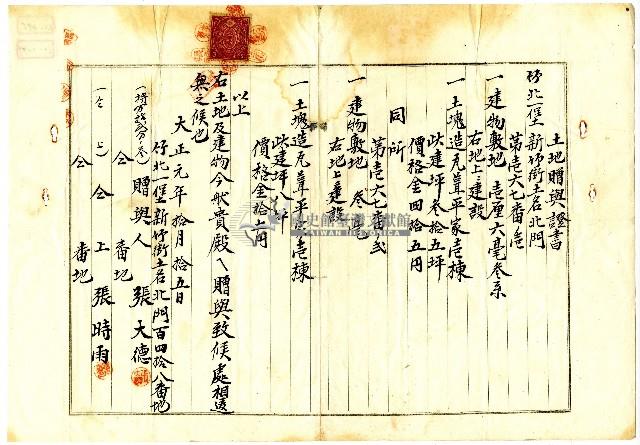 土地贈與證書
竹北一堡新竹街土名北門
第壱六七番
一建物敷地 壱厘六毫参糸
右地上建設
一土塊造瓦葺平家壱棟
此建坪参拾五坪
價格金四拾五円
同所
第壱六七番
一建物敷地
右地上建設
一土塊造瓦葺平家壱棟
此建坪八坪
價格金拾六円
以上
右土地及建物今般貴殿へ贈與致候處相違
無之候也
大正元年拾月拾五日
竹北一堡新竹街土名北門百四拾八番地
贈與人 張大德
仝 番地
仝上 張時雨
仝 番地
國史館臺灣文獻館
TAIWAN HISTORICA